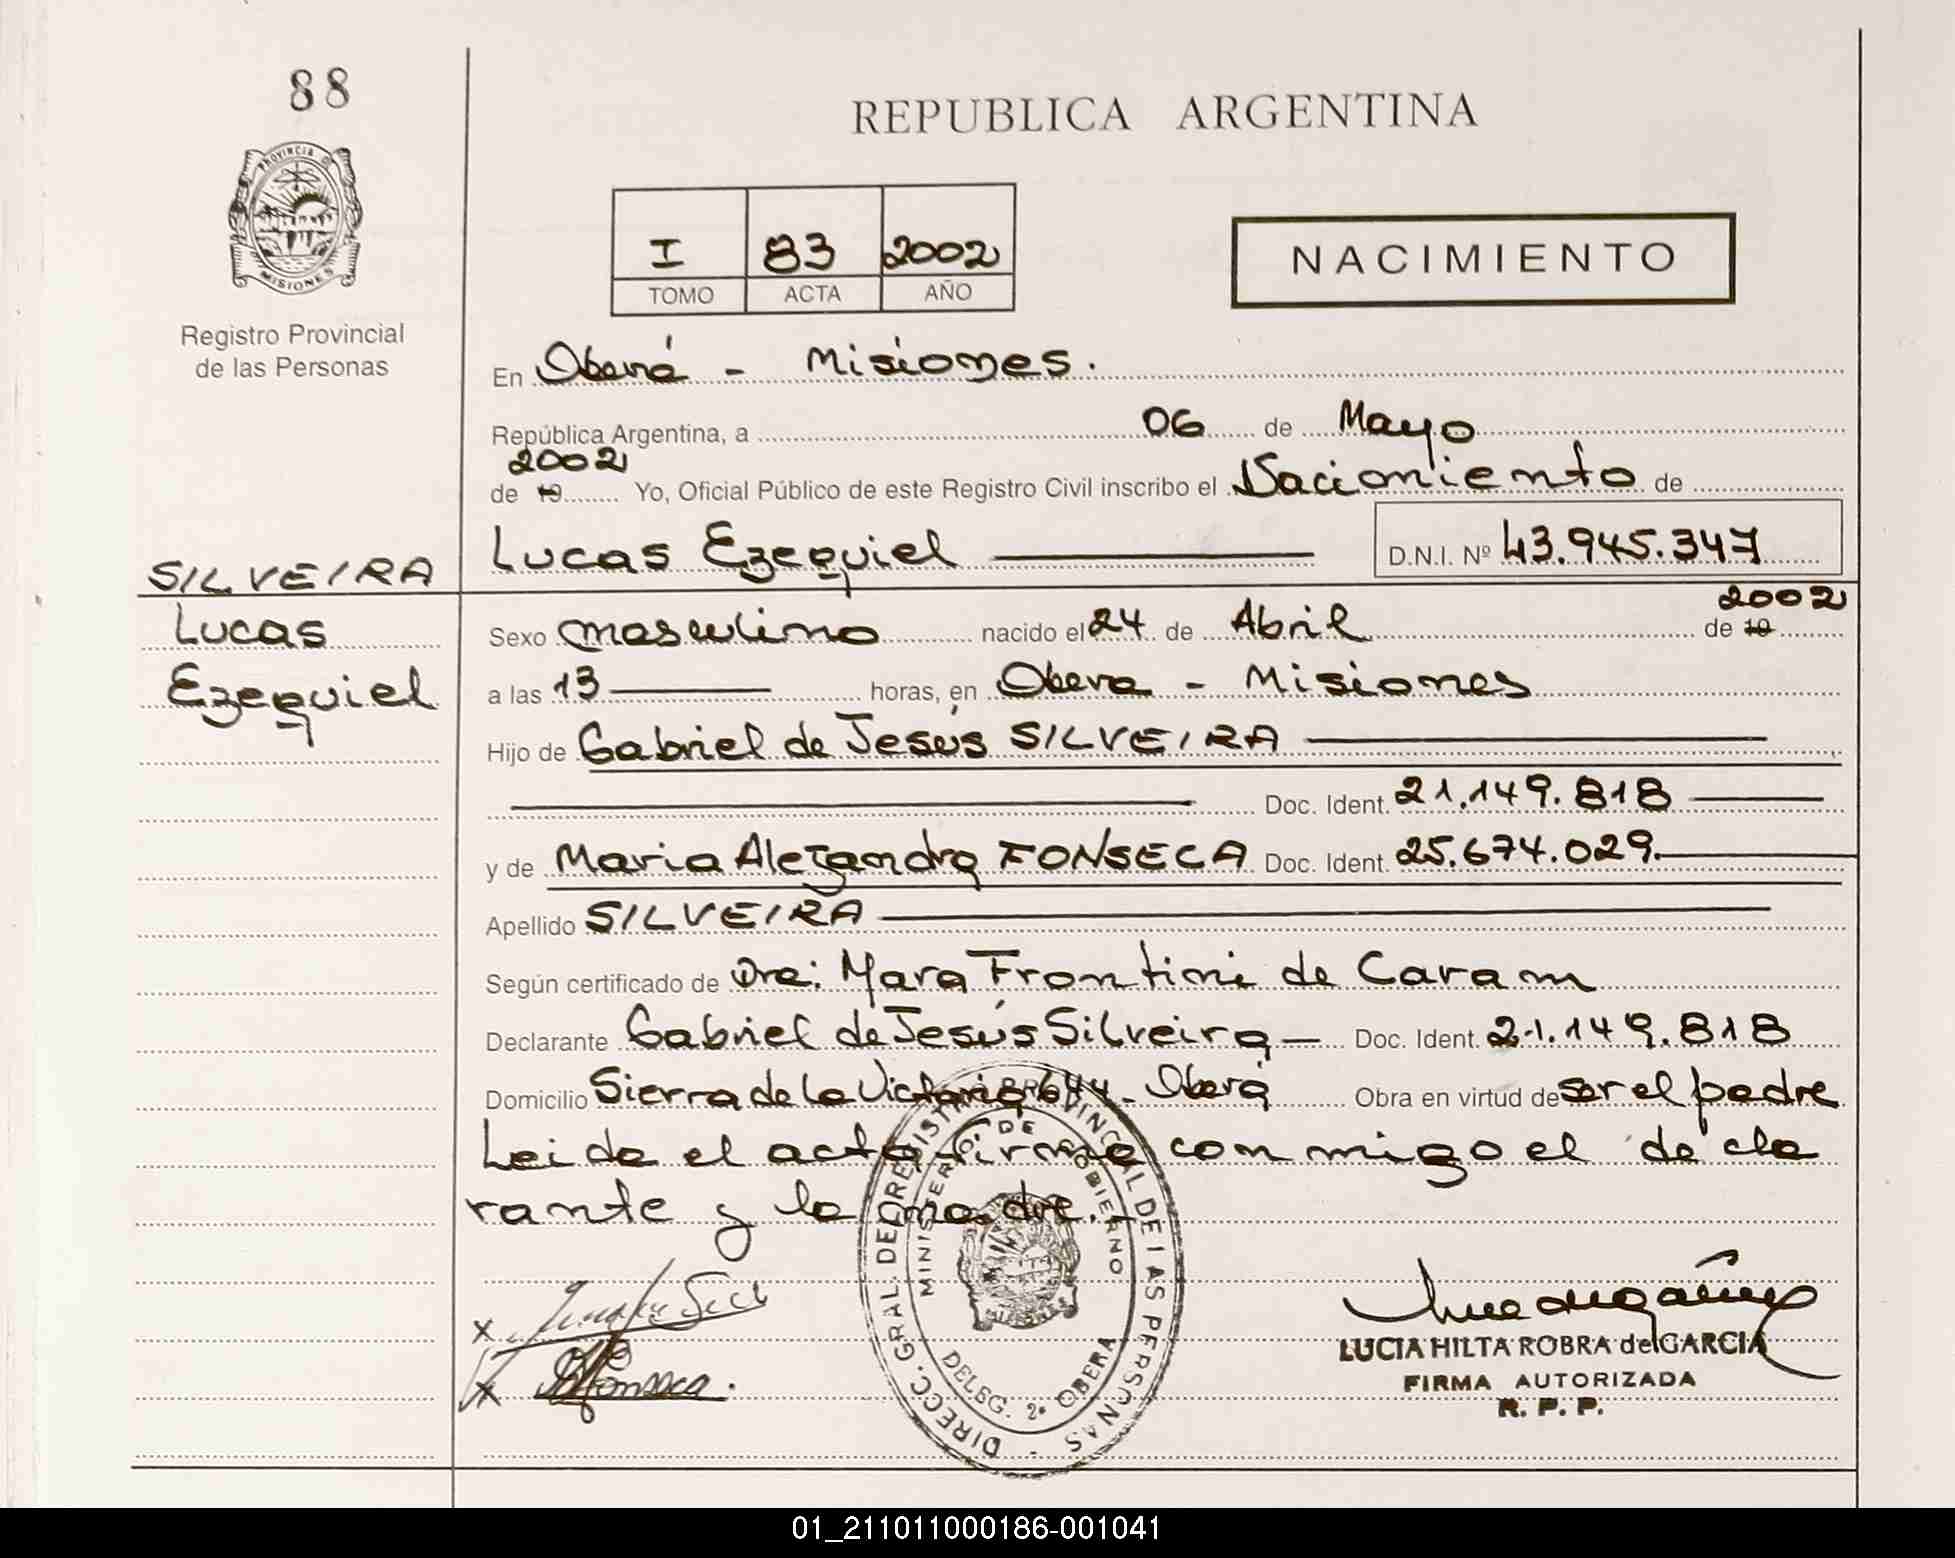 88
REPUBLICA ARGENTINA
PROVINCIA D
MISIONES
Registro Provincial
de las Personas
I 83 2002
TOMO ACTA AÑO
NACIMIENTO
En Oberá - Misiones.
República Argentina, a 06 de Mayo
2002
de 19 Yo, Oficial Público de este Registro Civil inscribo el Nacimiento de
Lucas Ezequiel D.N.I. Nº 43.945.347
SILVEIRA
Lucas
Ezequiel
2002
Sexo masculino nacido el 24 de Abril de 19
a las 13 horas, en Obera - Misiones
Hijo de Gabriel de Jesús SILVEIRA
Doc. Ident. 21.149.818
y de Maria Alejandra FONSECA Doc. Ident. 25.674.029.
Apellido SILVEIRA
Según certificado de Dra: Mara Frontini de Caram
Declarante Gabriel de Jesús Silveira - Doc. Ident. 21.149.818
Domicilio Sierra de la Victoria 644 - Oberá Obra en virtud de ser el padre
Leida el acta firma conmigo el decla
rante y la madre.-
x
x Fonseca.
DIRECC. GRAL. DEL REGISTRO PROVINCIAL DE LAS PERSONAS -
MINISTERIO DE GOBIERNO
MISIONES
DELEG. 2ª OBERA
LUCIA HILTA ROBRA de GARCIA
FIRMA AUTORIZADA
R. P. P.
01_211011000186-001041